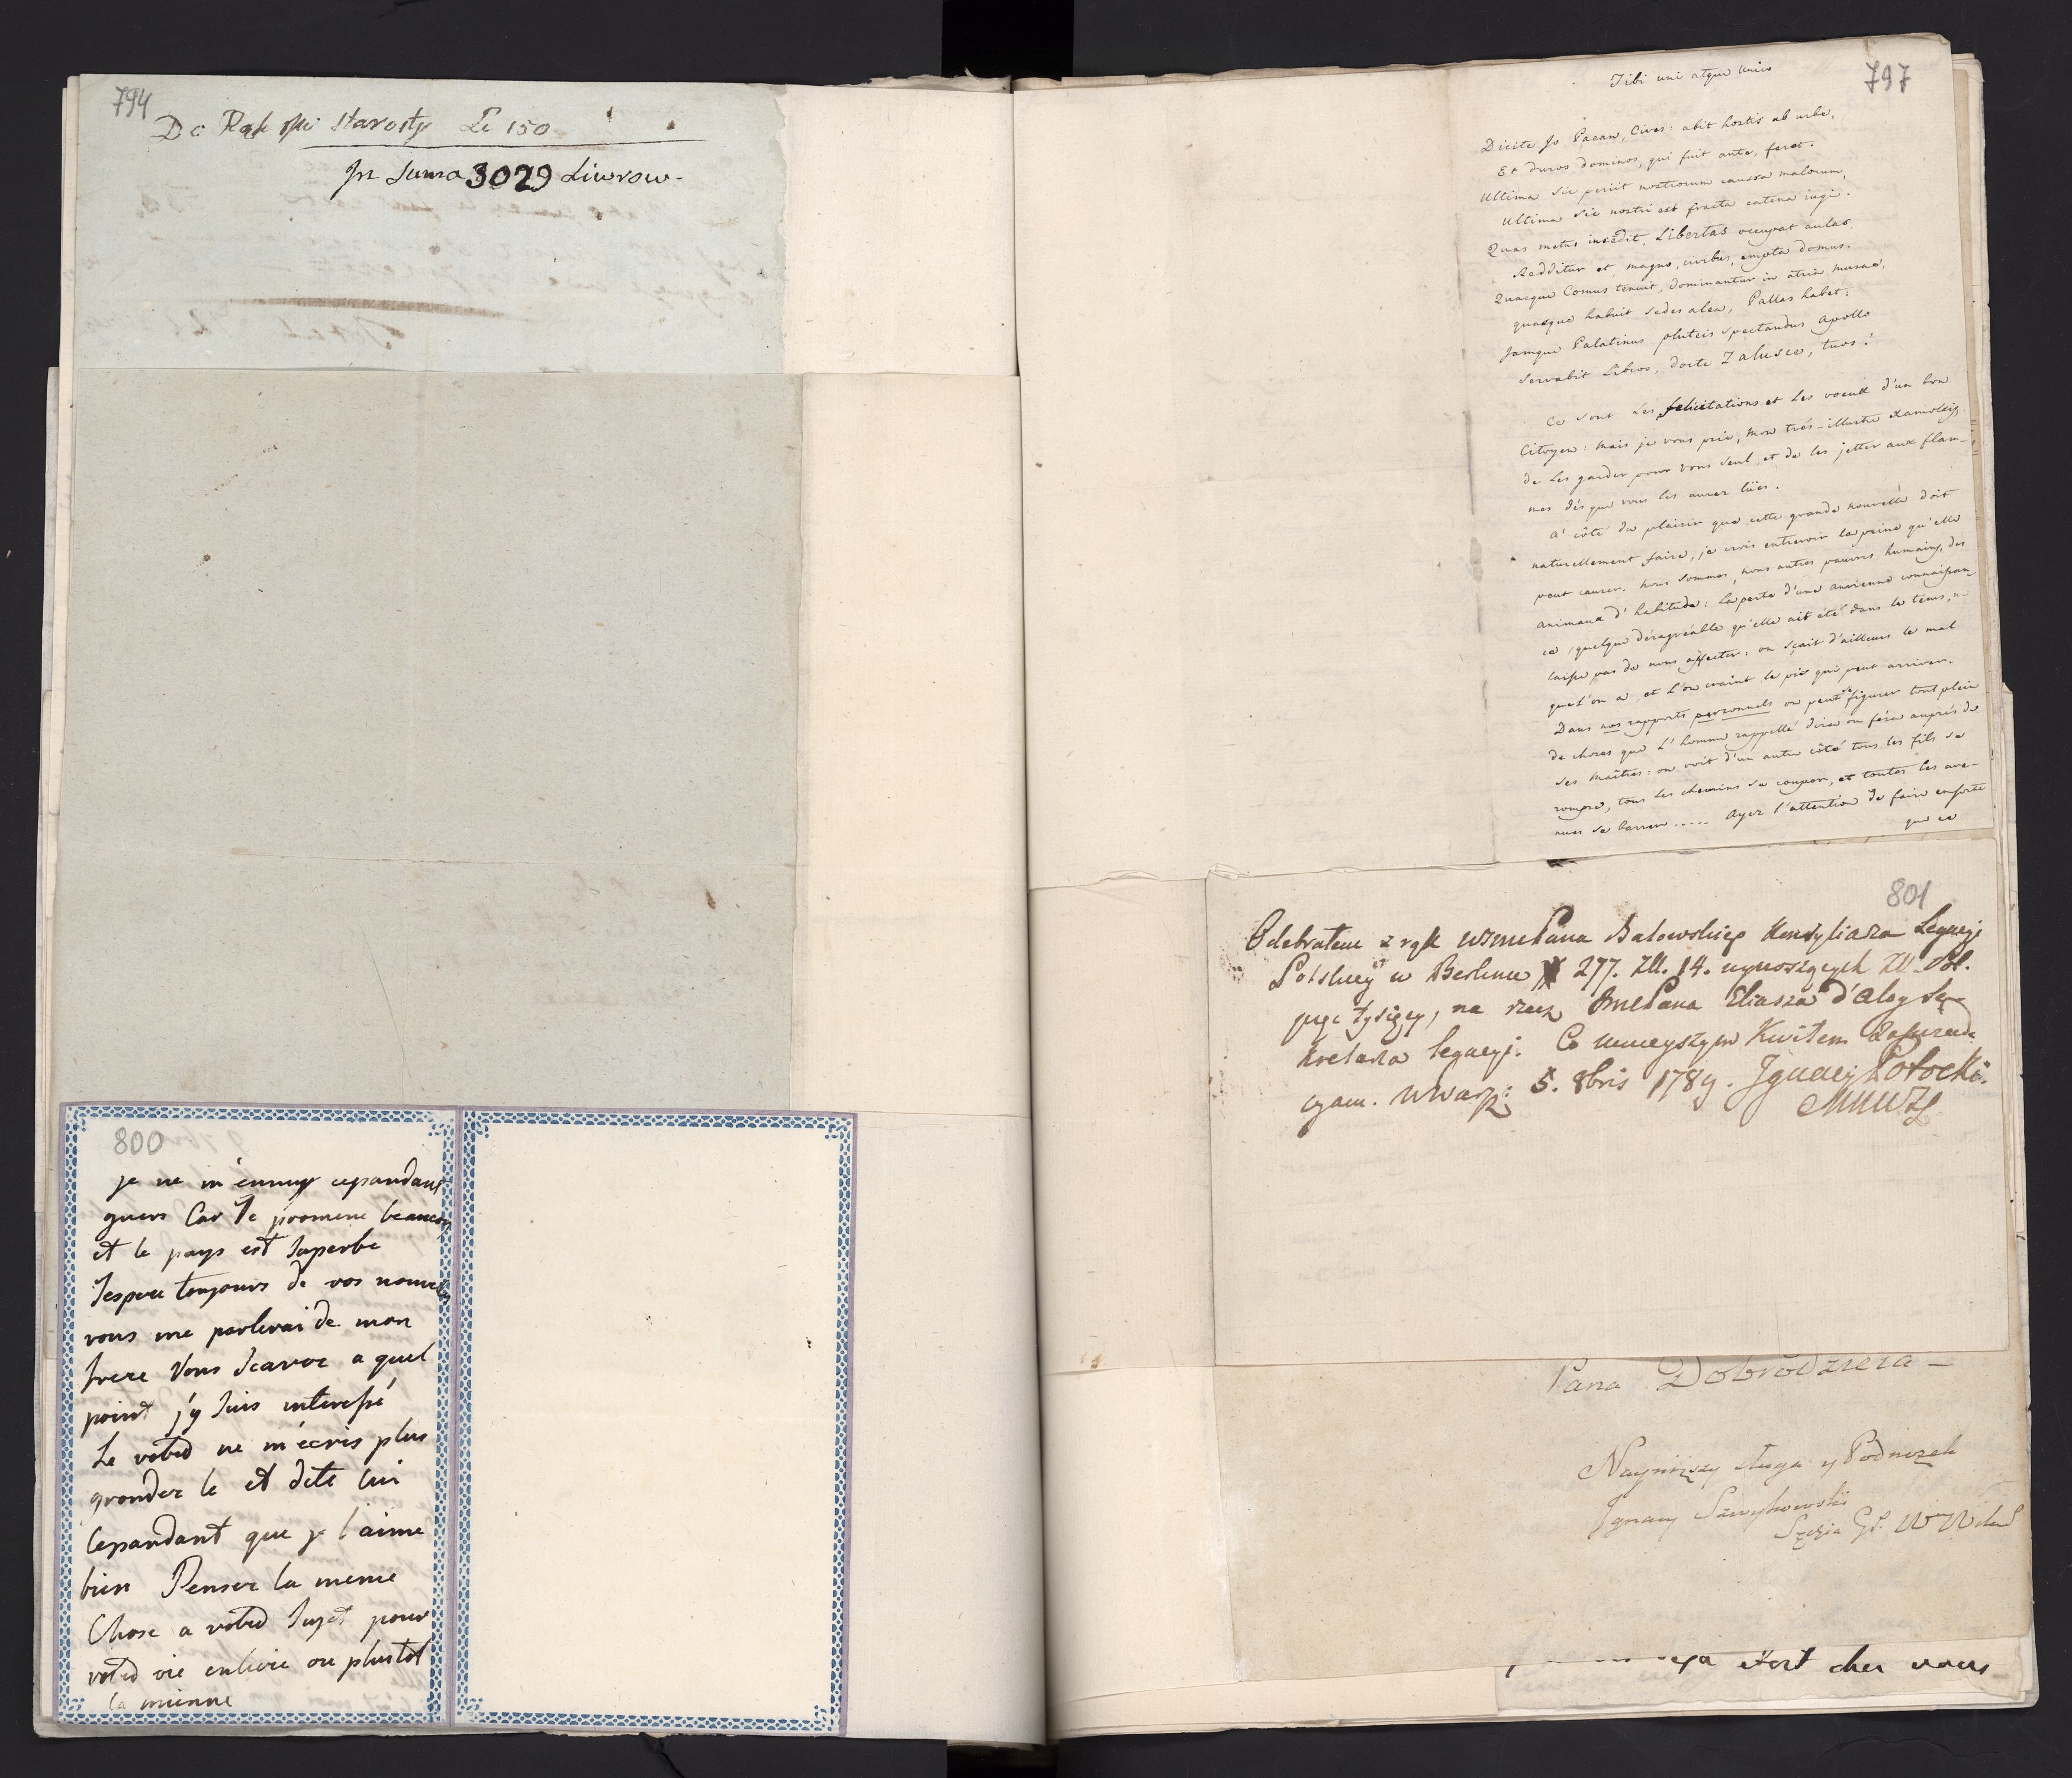 794
Do Rąk JPni Starosty Li 150
In Suma 3029 Liwrow -
800
je ne m'ennuy cepandant
guers Car Je promene beaucoup
et le pays est Superbe
Jespere toujours de vos nouvelles
vous me parlerai de mon
frere Vous Scavez a quel
point j'y Suis interessé
Le votre ne m'écris plus
gronder le et dite lui
Cepandant que je l'aime
bien Penser la meme
Chose a votre Sujet pour
votre vie entiere ou plustot
la mienne
797
Tibi uni atque unico
Dicite Jo Paean, Cives: abit hostis ab urbe,
Et duros dominos, qui fuit ante, feret.
Ultima sic periit nostrorum caussa malorum,
Ultima sic nostri est fracta catena iugi.
Quas metus insedit, Libertas occupat aulas,
Redditur et, magno, civibus, empta domus.
Quaeque Comus tenuit, dominantur in atria musae,
quaeque habuit sedes alea, Pallas habet:
Jamque Palatinus pluteis spectandus Apollo
Servabit Libros, docte Zalusce, tuos!
Ce sont les felicitations et les voeux d'un bon
Citoyen: mais je vous prie, mon très-illustre
de les garder pour vous seul, et de les jetter aux flam-
mes dés que vous les aurez lües.
A' côté du plaisir que cette grande nouvelle doit
naturellement faire, je crois entrevoir la peine qu'elle
peut causer. nous sommes, nous autres pauvres humains, des
animaux d'habitude: la perte d'une ancienne connaissan-
ce, quelque désagréable qu'elle ait été dans le tems, ne
laisse pas de nous affecter: on sçait d'ailleurs le mal
que l'on a, et l'on craint le pis qui peut arriver.
Dans nos rapports personnels on peut se figurer tout plein
de choses que L'homme rappellé dira ou fera auprès de
ses maîtres: on voit d'un autre côté tous les fils se
rompre, tous les chemins se couper, et toutes les ave-
nues se barrer ..... Ayez l'attention de faire ensorte
que ce
801
Odebrałem z rąk WJmcPana Batowskieg Konsyliarza Legacyi
Polskiey w Berlinie 277. Zll. 14. wynoszących Zll. Pol.
pięć tysięcy, na rzecz JmcPana Eliasza d'Aloy Se-
kretarza legacyi. Co ninieyszym Kwitem
czam. w Warsz: 5. 8bris 1789. Jgnacy Potocki.
Pana Dobrodzieia -
Nayniższy sługa y Podnożek
Ignacy
Sędzia Gr. W Wilens
deja etort cher vous